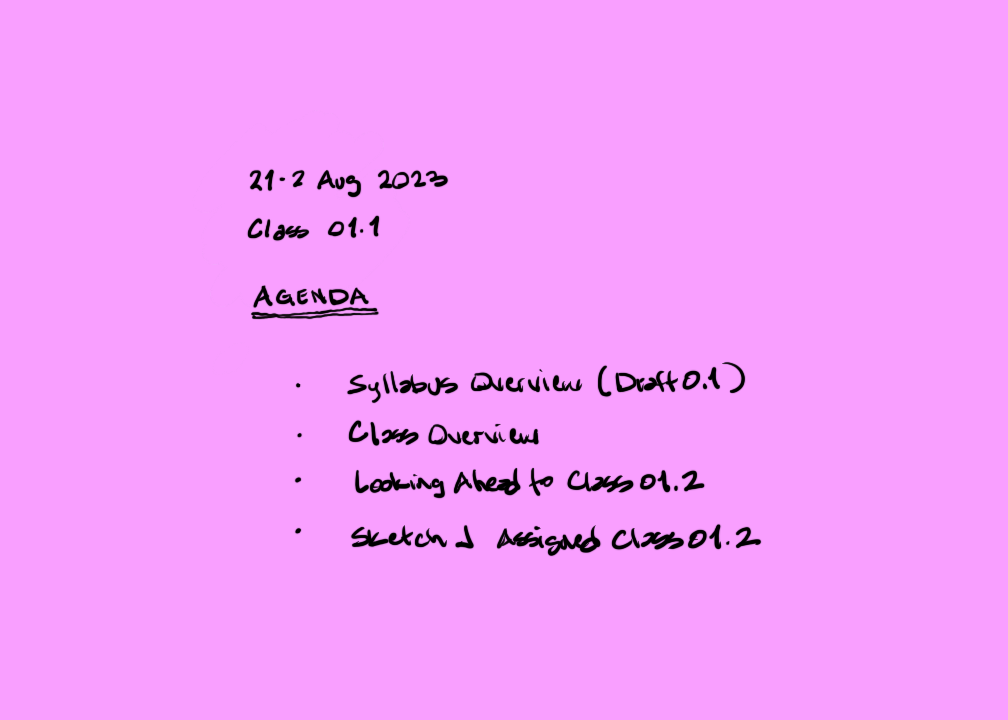 21-2 Aug 2023
Class 01.1
AGENDA
· Syllabus Overview (Draft 0.1)
· Class Overview
· Looking Ahead to Class 01.2
· Sketch 1 Assigned Class 01.2